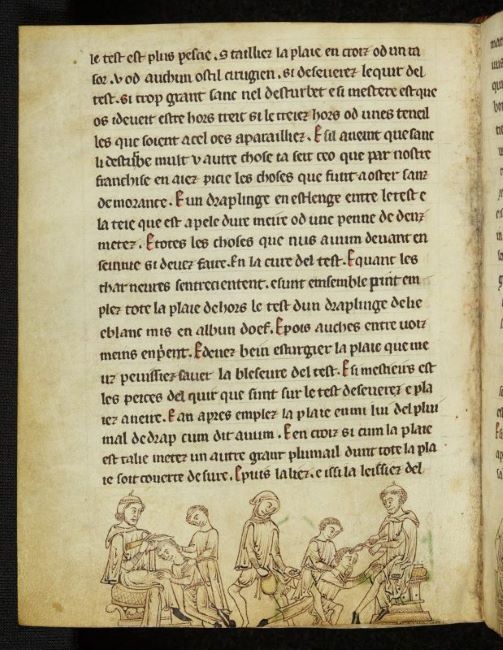 le test est plus pescie. s tailliez la plaie en croiz od un ra
sor. v od auchun ostil cirugien. si deseuerez le quir del
test. si trop grant sanc nel desturbet e si mestere est que
os i deueit estre hors treit si le treiez hors od unes teneil
les que soient a cel oes apatailliez. E sil aueint que sanc
li desturbe mult v autre chose ta seit ceo que par nostre
franchise en aiez picie les choses que funt a oster sanz
demorance. E un draplinge en estenge entre le test e
la teie que est apele dure meire od une penne de denz
metez. E totes les choses que nus auum deuant en
seinnie si deuez faire. En la cure del test. E quant les
char neures sentrecientent. e sunt ensemble prinr em
plez tote la plaie dehors le test dun draplinge delie
e blanc mis en albun doef. E pois auches entre uoiz
meins enp̄ent. E deuez bein esturgier la plaie que me
uz peussiez sauer la blesure del test. E si mestieirs est
les peices del quir que sunt sur le test deseuerez e pla
iez aneire. E an apres emplez la plaie enmi lui del plui
mal de drap cum dit auum. E en croiz si cum la plaie
est talie metez un autre grant plumail dunt tote la pla
ie soit couerte desure. E puis la liez. e issi la leissiez del